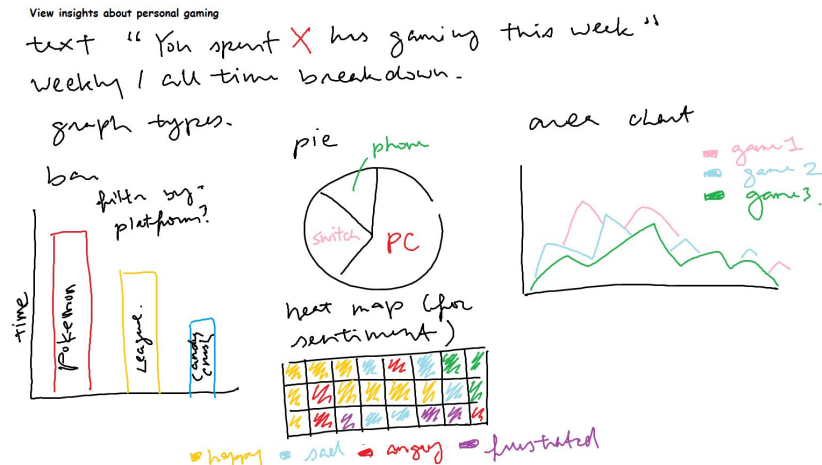 View insights about personal gaming
text "You spent X hrs gaming this week"
weekly / all time breakdown.
graph types.
bar
filter by
platform?
time
Pokemon
League.
Candy
crush
pie
phone
switch
PC
area chart
game 1
game 2
game 3.
heat map (for
sentiment)
happy sad angry frustrated